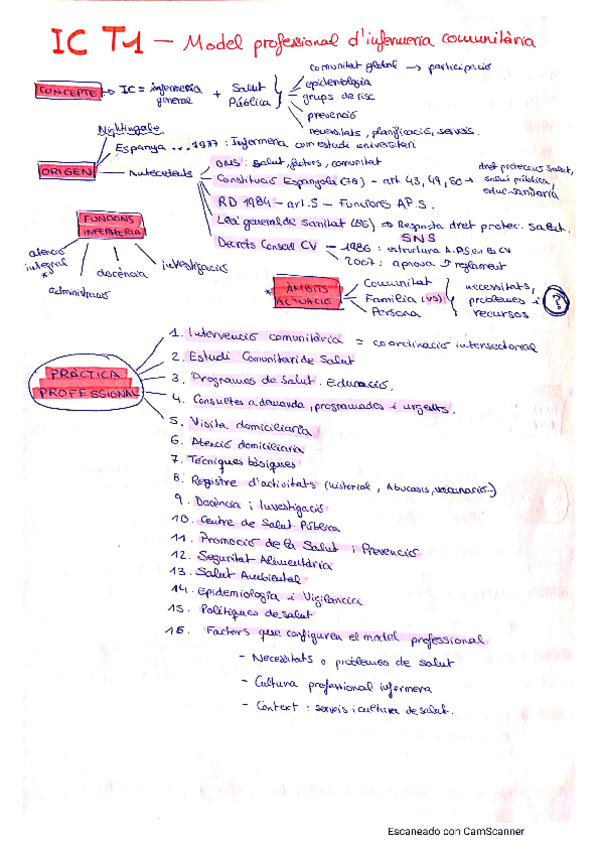 IC T1 — Model professional d'infermeria comunitària
comunitat global → participació
CONCEPTE → IC = infermeria general + Salut Pública
epidemiologia
grups de risc
prevenció
necessitats, planificació, serveis.
Nightingale
Espanya ... 1977: Infermera com estudi universitari
ORIGEN
Antecedents
OMS: salut, factors, comunitat
Constitució Espanyola (78) - art. 43, 49, 50 → dret protecció salut, salut pública, educ. sanitaria
RD 1984 - art. 5 - Funcions AP.S.
Llei general de Sanitat (86) ⇒ Resposta dret protec. salut.
SNS
Decrets Consell CV
1986: estructura A.P.S. en la CV
2007: aprova reglament
FUNCIONS INFERMERIA
atenció integral
administració
docència
investigació
* ÀMBITS ACTUACIÓ
Comunitat
Familia (VS)
Persona
necessitats, problemes i recursos
?
PRÀCTICA PROFESSIONAL
1. Intervenció comunitària = coordinació intersectorial
2. Estudi Comunitari de Salut
3. Programes de Salut. Educació.
4. Consultes a demanda, programades i urgents.
5. Visita domiciliaria
6. Atenció domiciliaria
7. Tècniques bàsiques
8. Registre d'activitats (historial, Abucasis, vacunació..)
9. Docència i Investigació
10. Centre de Salut Pública
11. Promoció de la Salut i Prevenció
12. Seguritat Alimentària
13. Salut Ambiental
14. Epidemiologia i Vigilancia
15. Polítiques de salut
16. Factors que configuren el model professional
- Necessitats o problemes de salut
- Cultura professional infermera
- Context: serveis i cultura de salut.
Escaneado con CamScanner